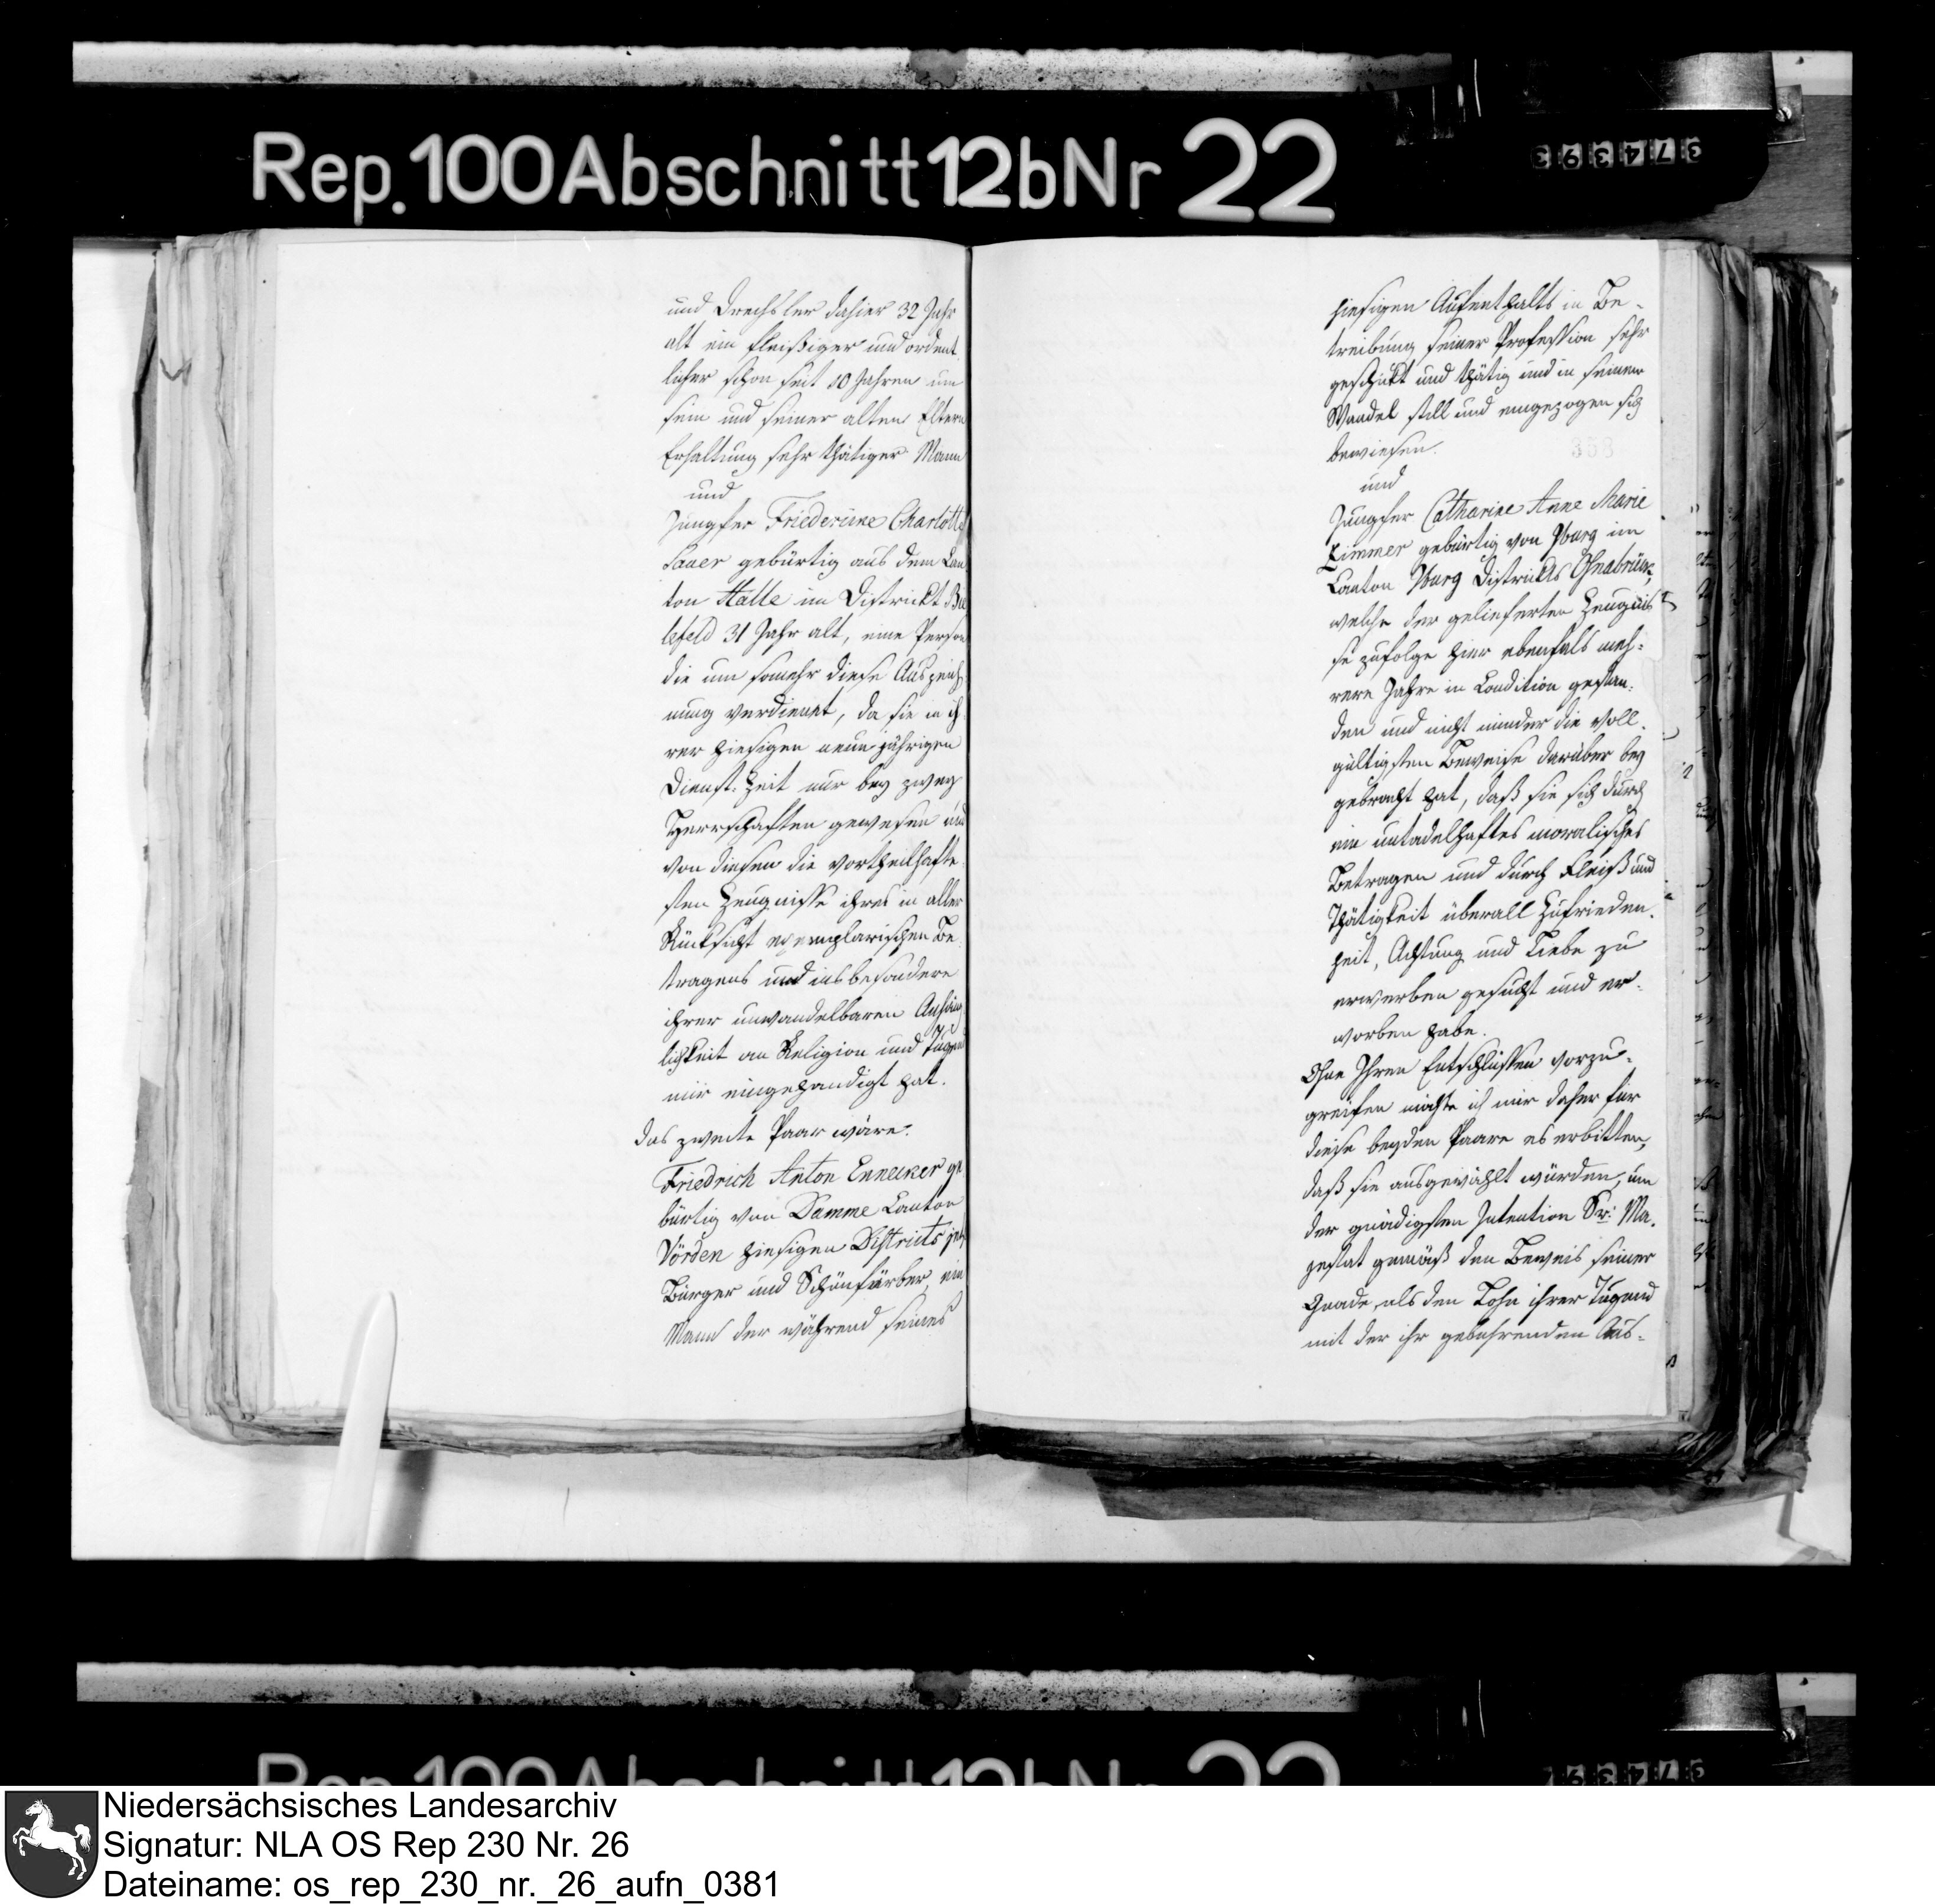 Rep. 100 Abschnitt 12b Nr 22
374393
und Drechsler dahier 32 Jahr
alt ein fleißiger und ordent
licher schon seit 10 Jahren um
sein und seiner alten Eltern
Erhaltung sehr thätiger Mann
und
Jungfer Friederime Charlotte
Sauer gebürtig aus dem Can
ton Halle im Districkt Bie
lefeld 31 Jahr alt, eine Person
die um somehr diese Auszeich
nung verdienet, da sie in ih
rer hiesigen neun jährigen
Dienst-Zeit nur bey zwey
Herrschaften gewesen und
von diesen die vortheilhafte
sten Zeugnisse ihres in aller
Rücksicht exemplarischen Be
tragens und insbesondere
ihrer unwandelbaren Anhäng
lichkeit an Religion und Tugend
mir eingehandigt hat.
das zweite Paar wäre.
Friedrich Anton Ennecker ge
bürtig von Damme Canton
Vörden hiesigen Districts jetz
Bürger und Schönfärber, ein
Mann der während seines
hiesigen Aufenthalts in Be-
treibung seiner Profession sehr
geschickt und thätig und in seinem
Wandel still und eingezogen sich
bewiesen.
358
und
Jungfer Catharine Anne Marie
Zimmer gebürtig von Yburg im
Canton Yburg Districkts Osnabrück,
welche der gelieferten Zeugnis
se zufolge hier ebenfals meh-
rere Jahre in Condition gestan-
den und nicht minder die voll-
gültigsten Beweise darüber bey
gebracht hat, daß sie sich durch
ein untadelhaftes moralisches
Betragen und durch Fleiß und
Thätigkeit überall Zufrieden-
heit, Achtung und Liebe zu
erwerben gesucht und er-
worben habe.
Ohne Ihren Entschlüssen vorzu-
greifen möchte ich mir daher für
diese beyden Paare es erbitten,
daß sie ausgewählt würden, um
der gnädigsten Intention Sr: Ma-
jestat gemäß den Beweis seiner
Gnade, als den Lohn ihrer Tugend
mit der ihr gebührenden Aus-
Niedersächsisches Landesarchiv
Signatur: NLA OS Rep 230 Nr. 26
Dateiname: os_rep_230_nr._26_aufn_0381